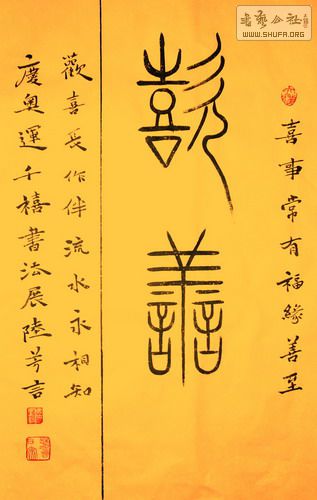 書藝公社
WWW.SHUFA.ORG
喜事常有福緣善至
歖譱
歡喜長作伴流水永相知
慶奧運千禧書法展陸芳言